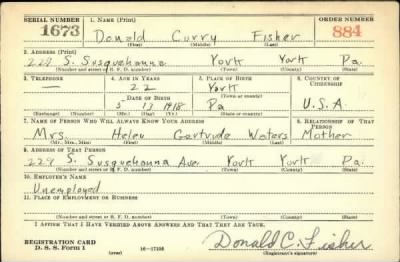 SERIAL NUMBER 1. NAME (Print) ORDER NUMBER
1673 Donald Curry Fisher 884
(First) (Middle) (Last)
2. ADDRESS (Print)
229 S. Susquehanna York York Pa.
(Number and street or R. F. D. number) (Town) (County) (State)
3. TELEPHONE 4. AGE IN YEARS 5. PLACE OF BIRTH 6. COUNTRY OF CITIZENSHIP
— 22 York
(Town or county)
DATE OF BIRTH
5 13 1918 Pa U.S.A.
(Exchange) (Number) (Mo.) (Day) (Yr.) (State or country)
7. NAME OF PERSON WHO WILL ALWAYS KNOW YOUR ADDRESS 8. RELATIONSHIP OF THAT PERSON
Mrs. Helen Gertrude Waters Mother
(Mr., Mrs., Miss) (First) (Middle) (Last)
9. ADDRESS OF THAT PERSON
229 S. Susquehanna Ave York York Pa.
(Number and street or R. F. D. number) (Town) (County) (State)
10. EMPLOYER'S NAME
Unemployed
11. PLACE OF EMPLOYMENT OR BUSINESS
(Number and street or R. F. D. number) (Town) (County) (State)
I AFFIRM THAT I HAVE VERIFIED ABOVE ANSWERS AND THAT THEY ARE TRUE.
REGISTRATION CARD
D. S. S. Form 1 (over) 16—17105 Donald C. Fisher
(Registrant's signature)